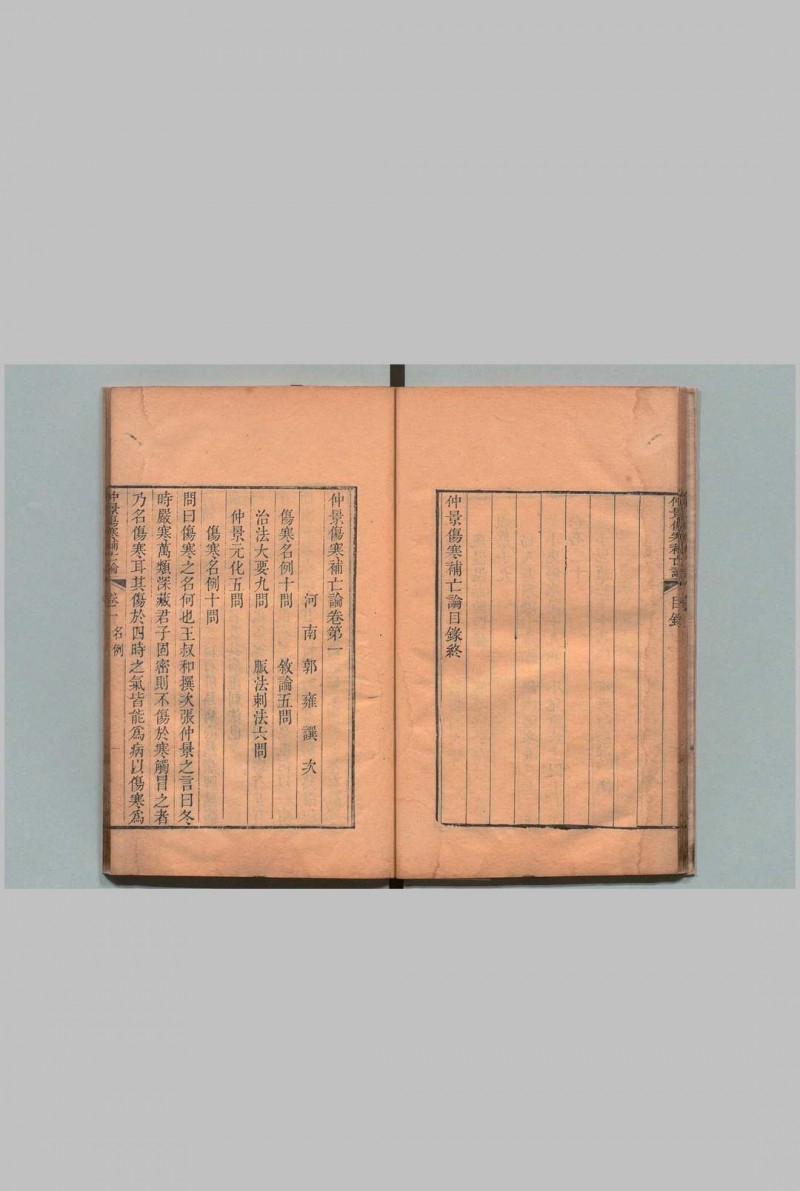 仲景傷寒補亡論 目錄
仲景傷寒補亡論目錄終
仲景傷寒補亡論卷第一
河南郭雍譔次
傷寒名例十問 敘論五問
治法大要九問 脈法刺法六問
仲景元化五問
傷寒名例十問
問曰傷寒之名何也王叔和撰次張仲景之言曰冬
時嚴寒萬類深藏君子固密則不傷於寒觸冒之者
乃名傷寒耳其傷於四時之氣皆能爲病以傷寒爲
仲景傷寒補亡論 卷一 名例